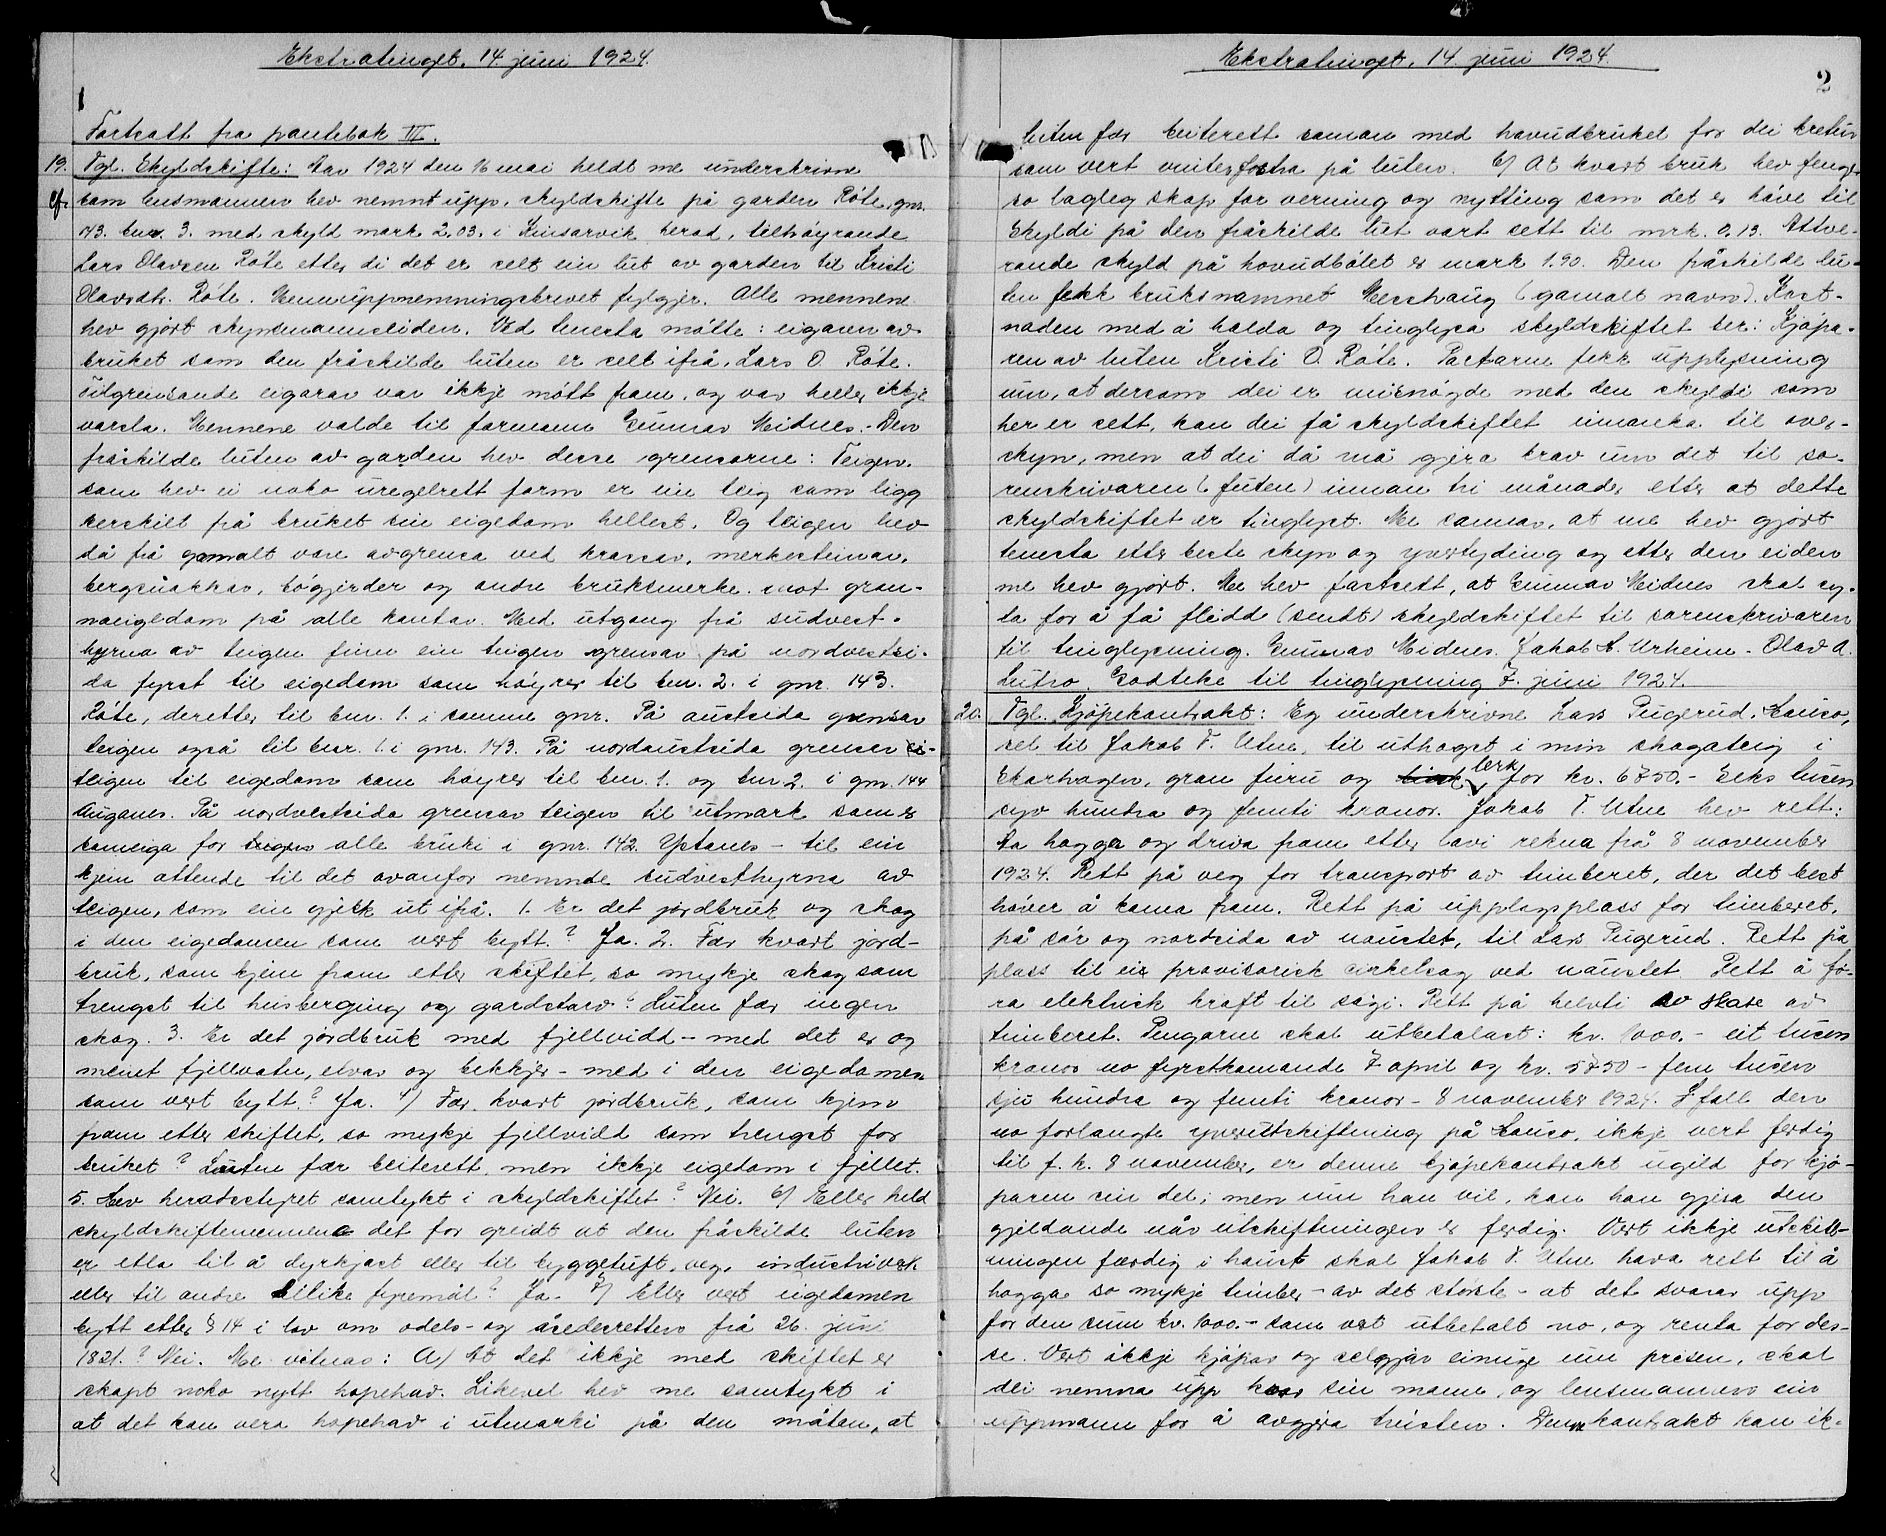 Ekstratinget, 14 juni 1924.
1
Fortsatt fra pantebok III.
19. Dgl. Skyldskifte: Aar 1924 den 16 mai heldt me underskrivne
som lensmannen hev nemnt upp, skyldskifte på garden Røte, gnr.
143. bnr. 3. med skyld mark 2,03. i Kinsarvik herad, tilhøyrande
Lars Olavsen Røte etter di det er selt ein lut av garden til Kristi
Olavsdtr. Røte. Menuppnemningsbrevet fylgjer. Alle mennene
hev gjort skynsmannseiden. Ved tenesta møtte: eigaren av
bruket som den fråskilde luten er selt ifrå, Lars O. Røte.
Tilgrensande eigarar var ikkje møtt fram, og var heller ikkje
varsla. Mennene valde til formann Gunnar Midnes. - Den
fråskilde luten av garden hev desse grensorne: Teigen.
som hev ei noko uregelrett form er ein teig som ligg
serskilt frå bruket sin eigedom hellest. Og teigen hev
då frå gamalt vore avgrensa ved krossar, merkesteinar,
bergsnakkar, bøgjerder og andre bruksmerke mot gran-
neeigedom på alle kantar. Med utgang frå sudvest-
hyrna av teigen finn ein teigen grensar på nordvestsi-
da fyrst til eigedom som høyrer til bnr. 2. i gnr. 143.
Røte, deretter til bnr. 1. i samme gnr. På austsida grensar
teigen også til bnr. 1. i gnr. 143. På nordaustsida grenser
teigen til eigedom som høyrer til bnr. 1. og bnr 2. i gnr. 144
Auganes. På nordvestsida grensar teigen til utmark som er
sameiga for teigen alle bruki i gnr. 142. Ystanes - til ein
kjem attende til det ovanfor nemnde sudvesthyrna av
teigen, som ein gjekk ut ifrå. 1. Er det jordbruk og skog
i den eigedomen som vert bytt? Ja. 2. Fær kvart jord-
bruk, som kjem fram etter skiftet, so mykje skog som
trengst til husberging og gardstarv? Luten fær ingen
skog. 3. Er det jordbruk med fjellvidd - med det er og
meint fjellvatn, elvar og bekkjer - med i den eigedomen
som vert bytt? Ja. 4) Fær kvart jordbruk, som kjem
fram etter skiftet, so mykje fjellvidd som trengst for
bruket? Luten fær beiterett, men ikkje eigedom i fjellet.
5. Hev heradsstyret samtykt i skyldskiftet? Nei. 6) Eller held
skyldskiftemennene det for greidt at den fråskilde luten
er etla til å dyrkjast eller til byggetuft, veg, industriverk
eller til andre slike fyremål? Ja. 7) Eller vert eigedomen
bytt etter § 14 i lov om odels- og åsedesretten frå 26. juni
1821.? Nei. Me vitnar: A) At det ikkje med skiftet er
skapt noko nytt hopehav. Likevel hev me samtykt i
at det kan vera hopehav i utmarki på den måten, at
Ekstratinget, 14 juni 1924.
2
luten fær beiterett saman med hovudbruket for dei kretur
som vert vinterfostra på luten. b) At kvart bruk hev fenge
so lagleg skap for verning og nytting som det er høve til
Skyldi på den fråskilde lut vart sett til mrk. 0,13. Attve-
rande skyld på hovudbølet er mark 1.90. Den fråskilde lu-
ten fekk bruksnamnet Meshaug (gamalt navn). Kost-
naden med å halda og tinglysa skyldskiftet ber: Kjøpa-
ren av luten Kristi O. Røte. Partarne fekk upplysning
um, at dersom dei er misnøgde med den skyldi som
her er sett, kan dei få skyldskiftet innanka til over-
skyn, men at dei då må gjera krav um det til so-
renskrivaren (futen) innan tri månader etter at dette
skyldskiftet er tinglyst. Me sannar, at me hev gjort
tenesta etter beste skyn og yvertyding og etter den eiden
me hev gjort. Me hev fastsett, at Gunnar Midnes skal sy-
ta for å få flidd (sendt) skyldskiftet til sorenskrivaren
til tinglysning. Gunnar Midnes. Jakob A. Urheim - Olav A.
Lutro. Godteke til tinglysning 7. juni 1924.
20. Dgl. Kjøpekontrakt: Eg underskrivne Lars Pugerud, Lauso,
sel til Jakob T. Utne, til uthogst i min skogateig i
Skarhagen, gran furu og lerk for kr. 6750.- Seks tusen
syv hundra og femti kronor. Jakob T. Utne hev rett:
Aa hogga og driva fram etter lovi rekna frå 8 november
1924. Rett på veg for transport av timberet, der det best
høver å koma fram. Rett på upplagsplass for timberet,
på sør og nordsida av naustet, til Lars Pugerud. Rett på
plass til ein provisorisk cirkelsag ved naustet. Rett å fø-
ra elektrisk kraft til sagi. Rett på helvti av skase av
timberet. Pengarne skal utbetalast: kr. 1000.- eit tusen
kronor no fyrstkomande 7 april og kr. 5750 - fem tusen
sju hundra og femti kronor - 8 november 1924. I fall den
no forlangte yverutskiftning på Lauso, ikkje vert ferdig
til f. k. 8 november, er denne kjøpekontrakt ugild for kjø-
paren sin del; men um han vil, kan han gjera den
gjeldande når utskiftningen er ferdig. Vert ikkje utskift-
ningen færdig i haust skal Jakob T. Utne hava rett til å
hogga so mykje timber - av det største - at det svarar upp
for den sum kr. 1000.- som vert utbetalt no, og renta for des-
se. Vert ikkje kjøpar og selgjar einige um prisen, skal
dei nemna upp kvar sin mann, og lensmannen ein
uppmann for å avgjera tvisten. Denne kontrakt kan ik-